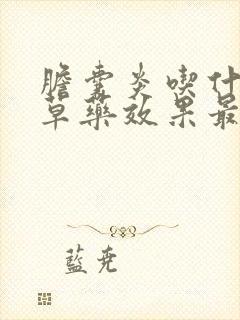 膽囊炎喫什
草藥效果最
藍堯